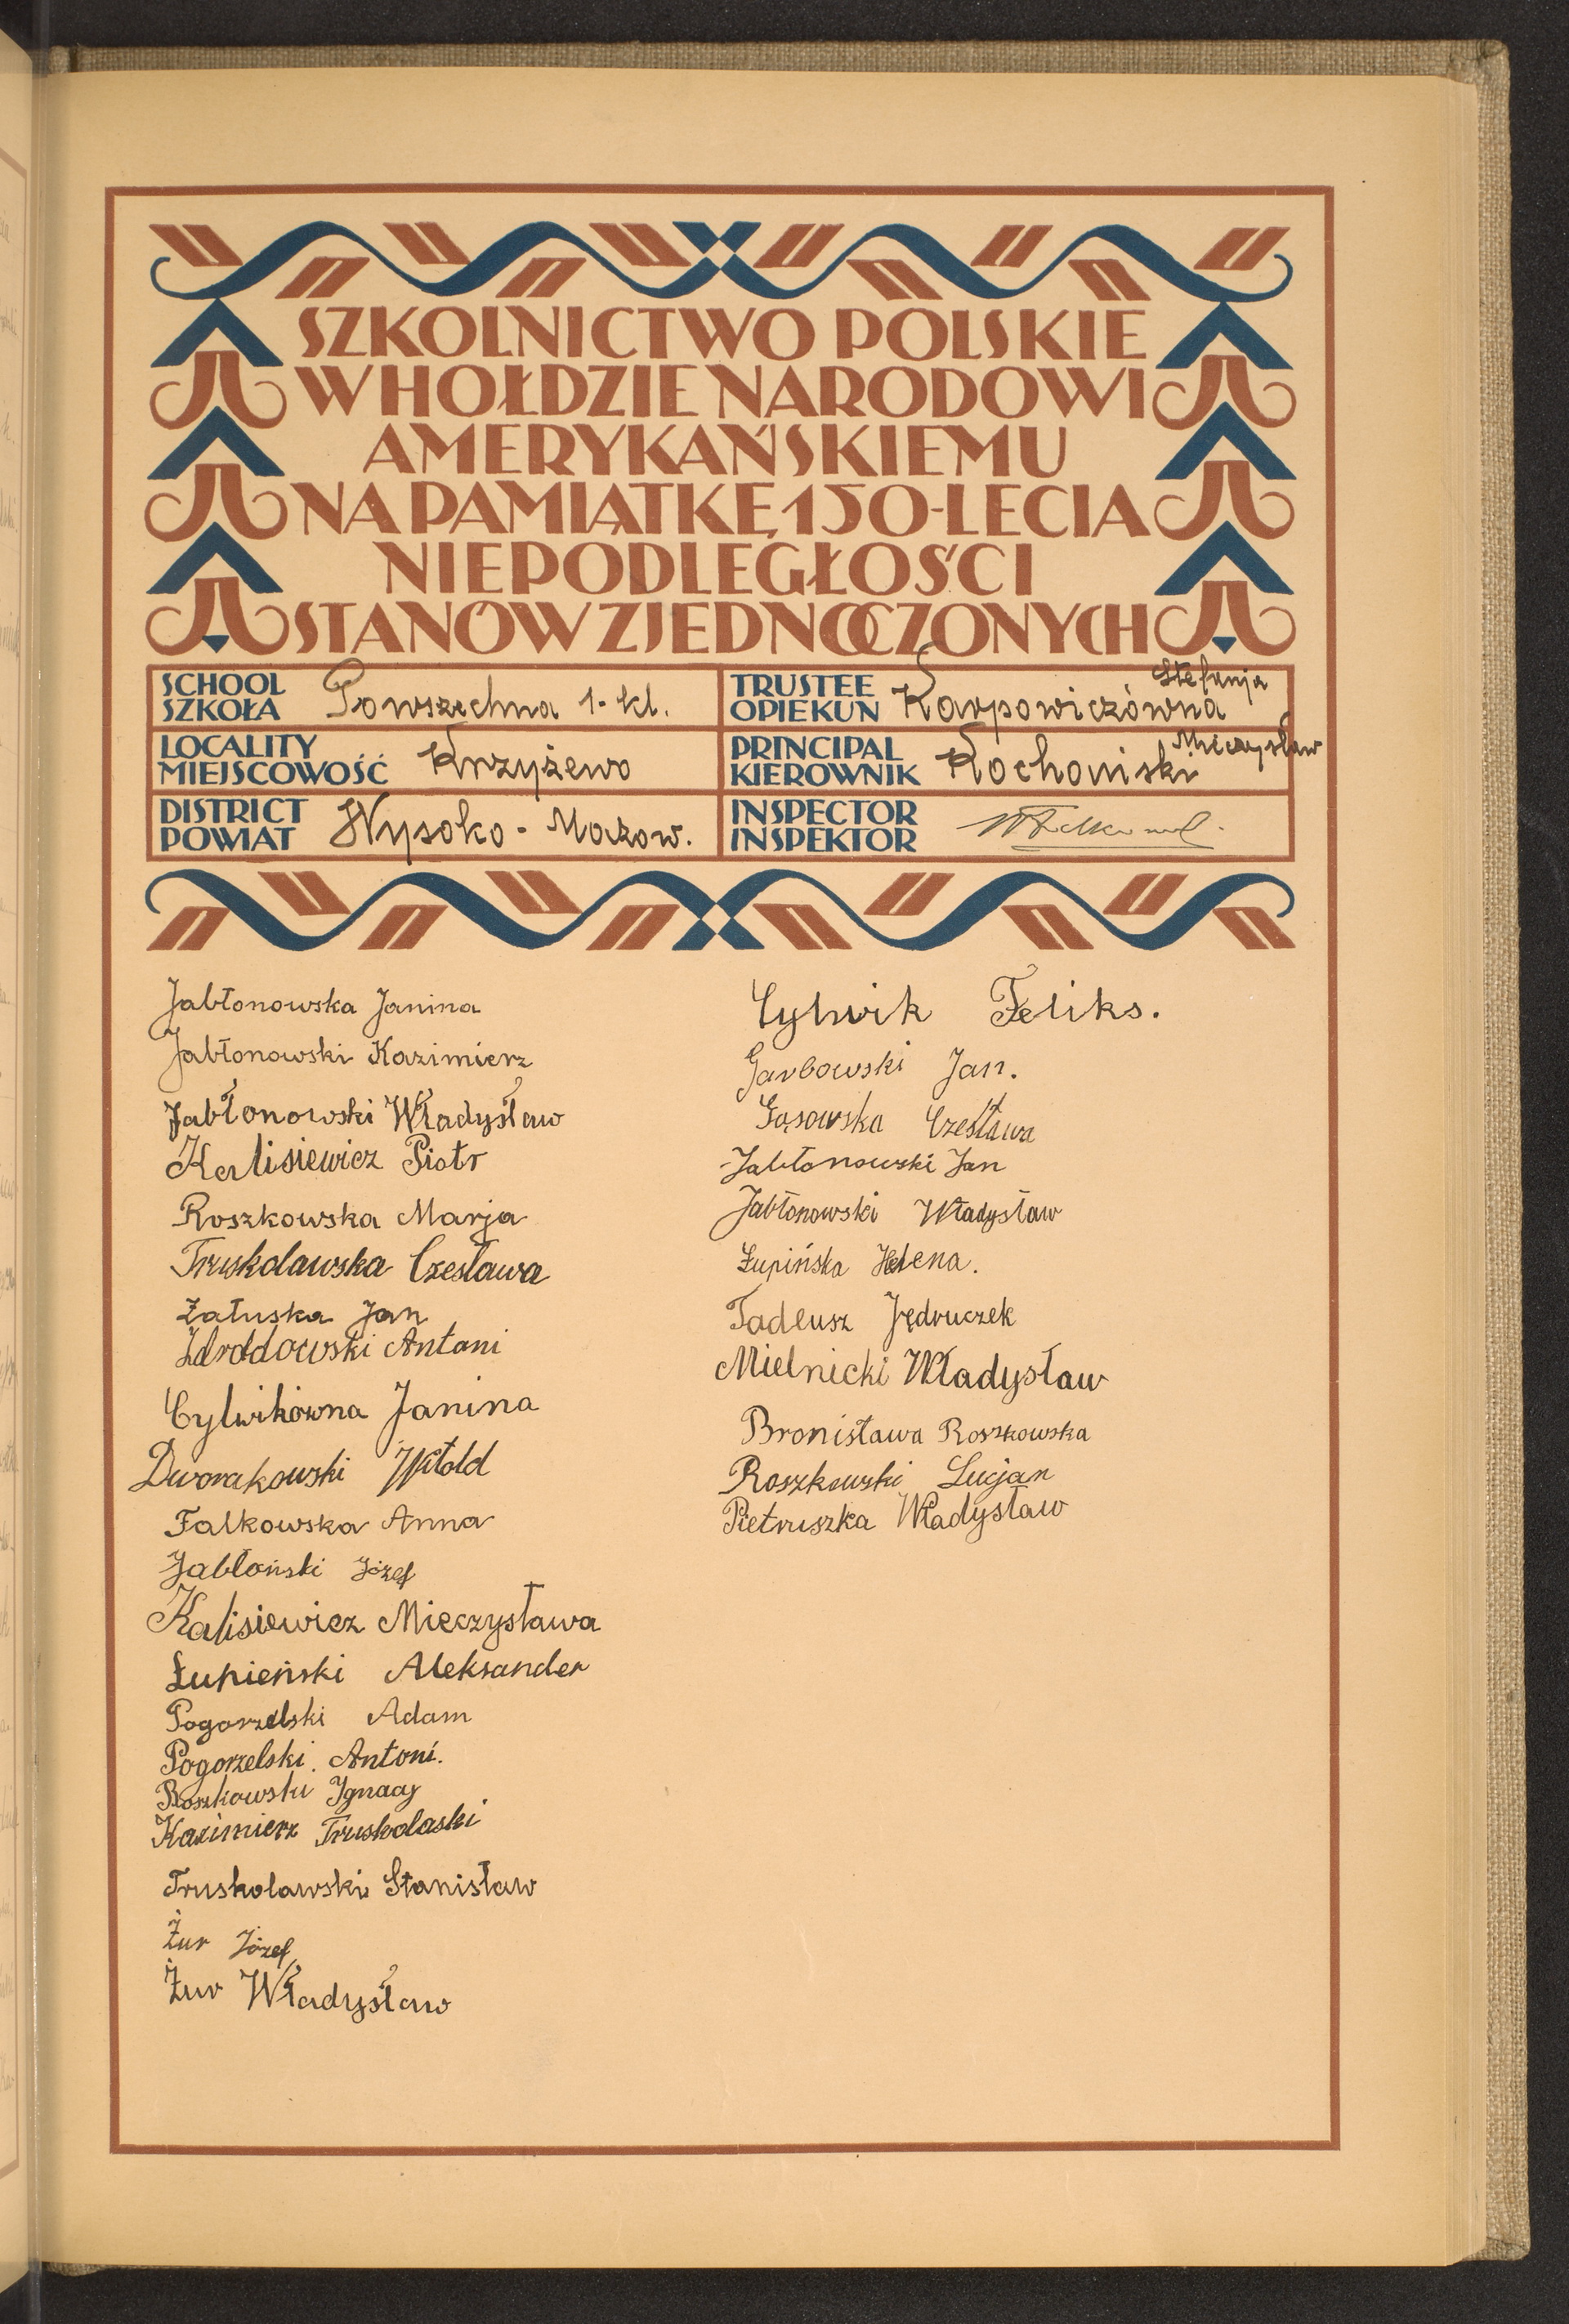 SZKOLNICTWO POLSKIE
W HOŁDZIE NARODOWI
AMERYKAŃSKIEMU
NA PAMIĄTKĘ 150-LECIA
NIEPODLEGŁOŚCI
STANÓW ZJEDNOCZONYCH
SCHOOL
SZKOŁA
Powszechna 1-kl.
TRUSTEE
OPIEKUN
Stefanja
Karpowiczówna
LOCALITY
MIEJSCOWOŚĆ
Krzyżewo
PRINCIPAL
KIEROWNIK
Mieczysław
Kochoński
DISTRICT
POWIAT
Wysoko-Mazow.
INSPECTOR
INSPEKTOR
Jabłonowska Janina
Jabłonowski Kazimierz
Jabłonowski Władysław
Kalisiewicz Piotr
Roszkowska Marja
Truskolawska Czesława
Załuska Jan
Zdroddowski Antoni
Cylwikówna Janina
Dworakowski Witold
Falkowska Anna
Jabłoński Józef
Kalisiewicz Mieczysława
Łupieński Aleksander
Pogorzelski Adam
Pogorzelski. Antoni.
Roszkowski Ignacy
Kazimierz Truskolaski
Truskolawski Stanisław
Żur Józef
Żur Władysław
Cylwik Feliks.
Garbowski Jan.
Gąsowska Czesława
Jabłonowski Jan
Jabłonowski Władysław
Łupińska Helena.
Tadeusz Jędruczek
Mielnicki Władysław
Bronisława Roszkowska
Roszkowski Lucjan
Pietruszka Władysław